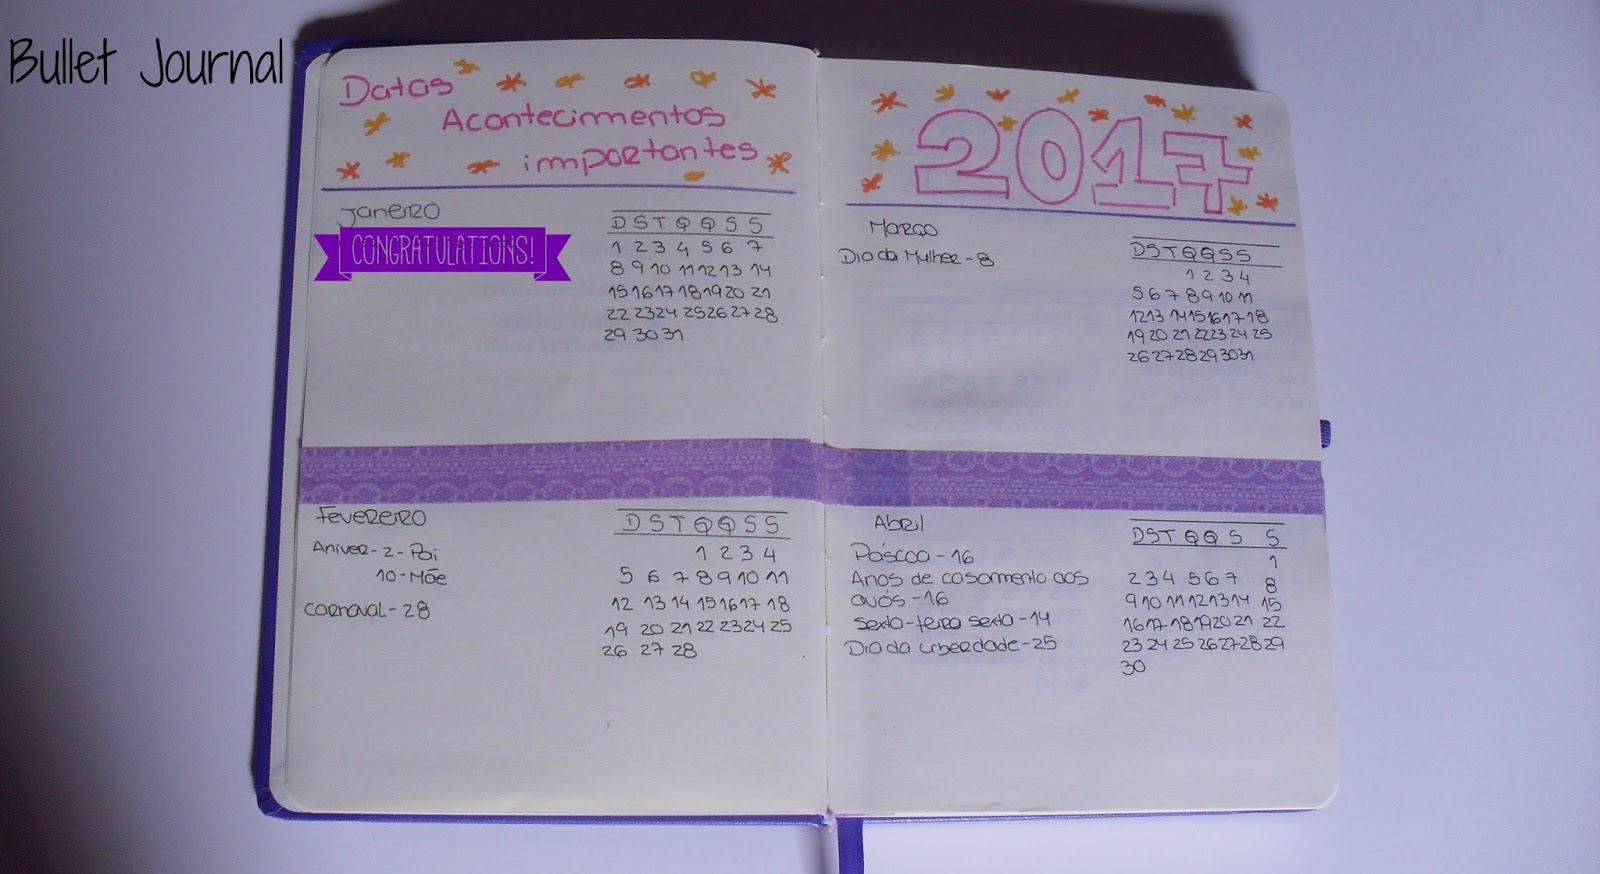 Bullet Journal
Datas
Acontecimentos
importantes
Janeiro
CONGRATULATIONS!
D S T Q Q S S
1 2 3 4 5 6 7
8 9 10 11 12 13 14
15 16 17 18 19 20 21
22 23 24 25 26 27 28
29 30 31
Fevereiro
Aniver - 2 - Pai
10 - Mãe
Carnaval - 28
D S T Q Q S S
1 2 3 4
5 6 7 8 9 10 11
12 13 14 15 16 17 18
19 20 21 22 23 24 25
26 27 28
2017
Março
Dia da Mulher - 8
D S T Q Q S S
1 2 3 4
5 6 7 8 9 10 11
12 13 14 15 16 17 18
19 20 21 22 23 24 25
26 27 28 29 30 31
Abril
Páscoa - 16
Anos de casamento dos
avós - 16
Sexta-feira sexta - 14
Dia da Liberdade - 25
D S T Q Q S S
1
2 3 4 5 6 7 8
9 10 11 12 13 14 15
16 17 18 19 20 21 22
23 24 25 26 27 28 29
30